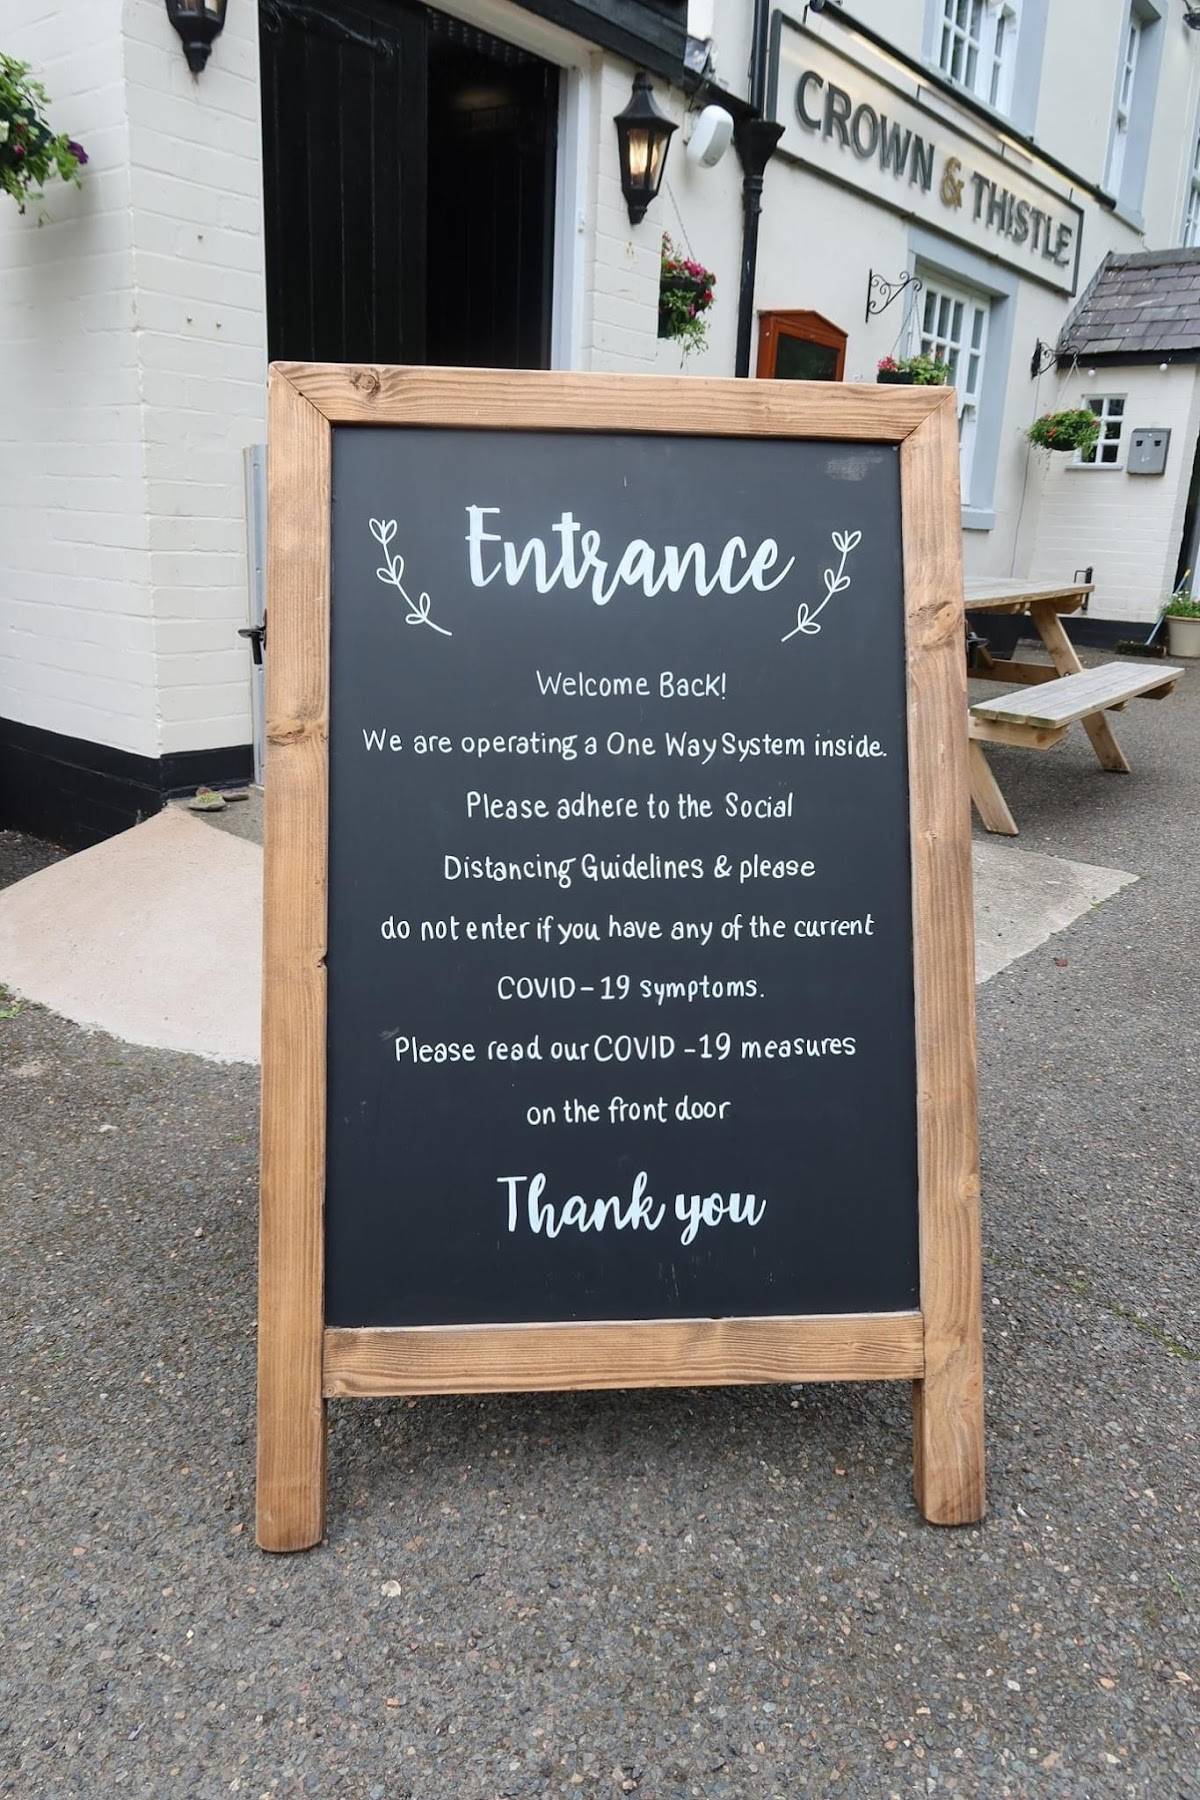 CROWN & THISTLE
Entrance
Welcome Back!
We are operating a One Way System inside.
Please adhere to the Social
Distancing Guidelines & please
do not enter if you have any of the current
COVID-19 symptoms.
Please read our COVID-19 measures
on the front door
Thank you